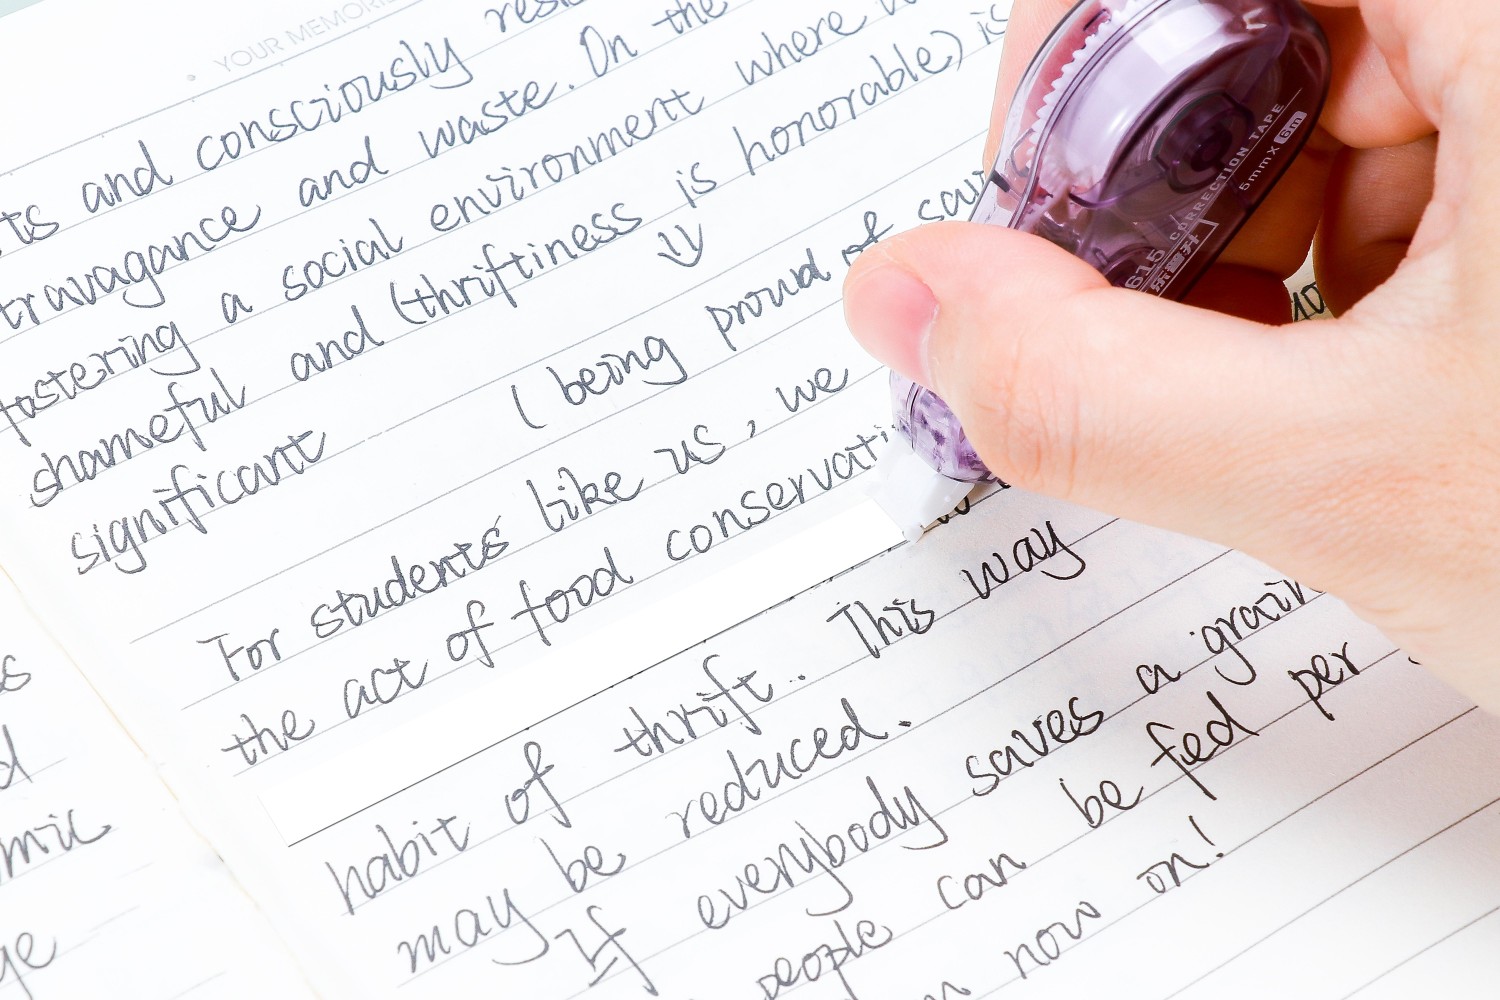 YOUR MEMORIES
and consciously
travagance and waste. On the
fostering a social environment where
shameful and (thriftiness is honorable) is
significant (being proud of
For students like us, we
the act of food conservati
habit of thrift. This way
may be reduced.
If everybody saves a grain
people can be fed per
now on!
mic
615 CORRECTION TAPE
5mm×6m